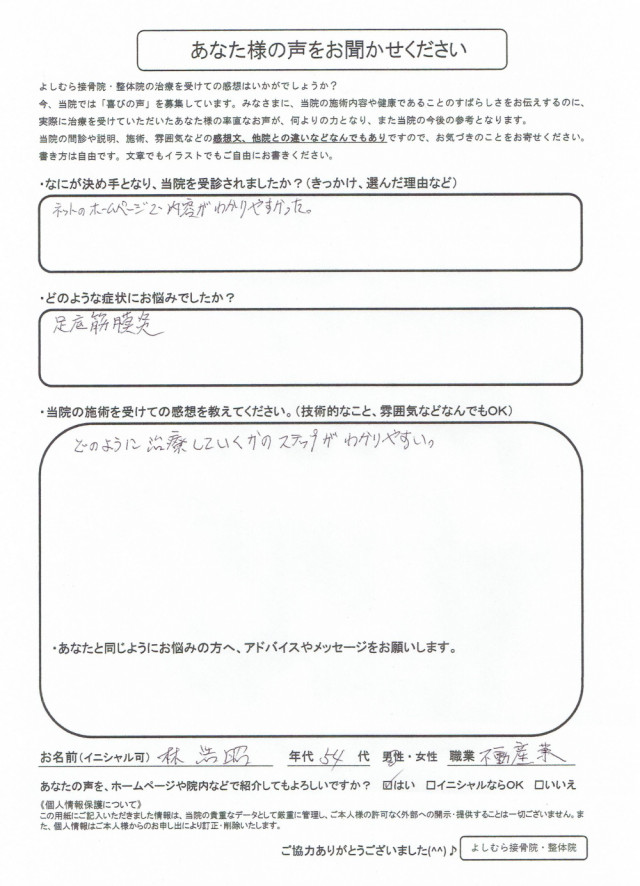 あなた様の声をお聞かせください
よしむら接骨院・整体院の治療を受けての感想はいかがでしょうか？
今、当院では「喜びの声」を募集しています。みなさまに、当院の施術内容や健康であることのすばらしさをお伝えするのに、
実際に治療を受けていただいたあなた様の率直なお声が、何よりの力となり、また当院の今後の参考となります。
当院の問診や説明、施術、雰囲気などの感想文、他院との違いなどなんでもありですので、お気づきのことをお寄せください。
書き方は自由です。文章でもイラストでもご自由にお書きください。
・なにが決め手となり、当院を受診されましたか？（きっかけ、選んだ理由など）
ネットのホームページで内容がわかりやすかった。
・どのような症状にお悩みでしたか？
足底筋膜炎
・当院の施術を受けての感想を教えてください。（技術的なこと、雰囲気などなんでもOK）
どのように治療していくかのステップがわかりやすい。
・あなたと同じようにお悩みの方へ、アドバイスやメッセージをお願いします。
お名前（イニシャル可） 林 浩昭 年代 54 代 男性・女性 職業 不動産業
あなたの声を、ホームページや院内などで紹介してもよろしいですか？ ☑はい □イニシャルならOK □いいえ
《個人情報保護について》
この用紙にご記入いただきました情報は、当院の貴重なデータとして厳重に管理し、ご本人様の許可なく外部への開示・提供することは一切ございません。ま
た、個人情報はご本人様からのお申し出により訂正・削除いたします。
ご協力ありがとうございました(^^)♪ よしむら接骨院・整体院